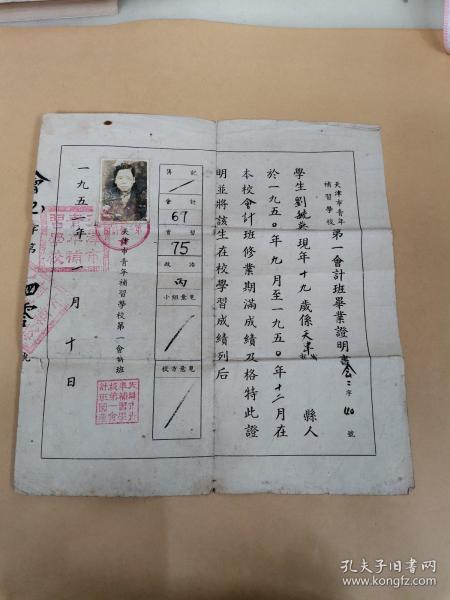 天津市青年
補習學校
第一會計班畢業證明書
會二字40號
學生劉毓英現年十九歲係天津縣人
於一九五〇年九月至一九五〇年十二月在
本校會計班修業期滿成績及格特此證
明並將該生在校學習成績列后
簿記
會計
67
實習
75
政治
丙
小組意見
校方意見
天津市青年補習學校第一會計班
一九五一年一月十日
孔夫子旧书网
www.kongfz.com